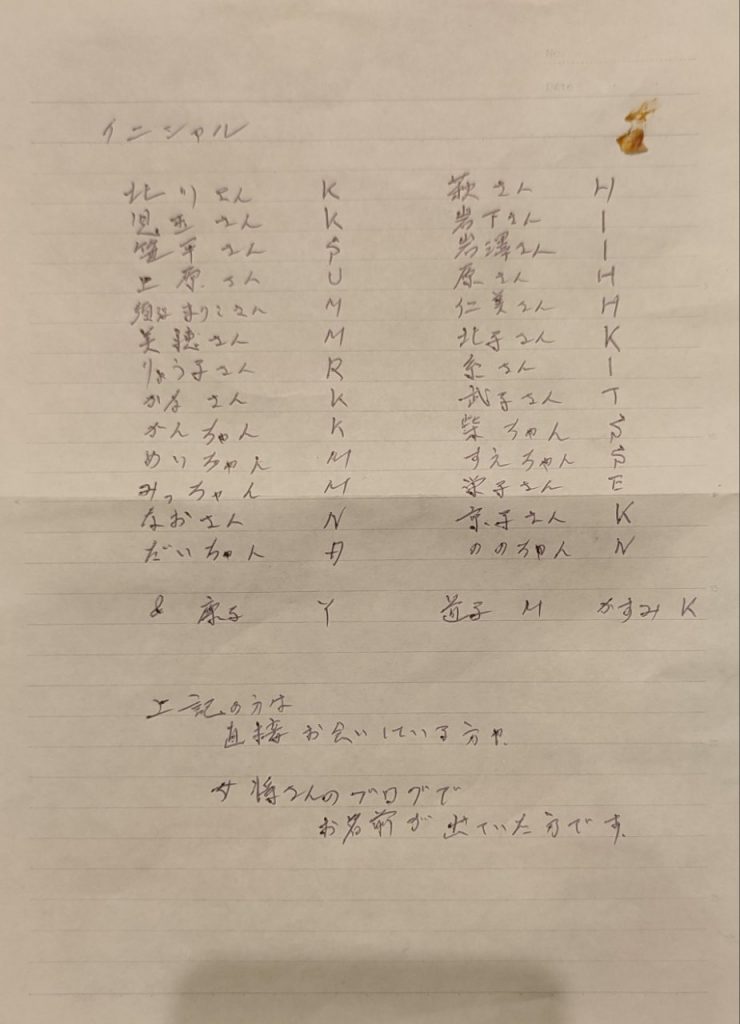 イニシャル
北川さん K 萩さん H
児玉さん K 岩下さん I
笹平さん S 岩澤さん I
上原さん U 原さん H
まりこさん M 仁美さん H
美穂さん M 北子さん K
りょう子さん R 糸さん I
かなさん K 武子さん T
がんちゃん K 柴ちゃん S
めりちゃん M すえちゃん S
みっちゃん M 栄子さん E
なおさん N 京子さん K
だいちゃん ののちゃん N
& 康子 Y 道子 M かすみ K
上記の方は
直接お会いしている方や
女将さんのブログで
お名前が出ていた方です。